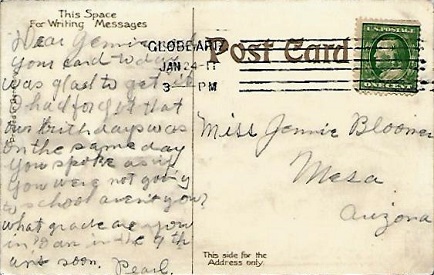 This Space
For Writing Messages
Dear Jennie
your card today
was glad to get
had forgot that
our birthdays was
on the same day
you spoke as if
you were not going
to school are you?
what grade are you
in I am in the 9th
ans soon. Pearl.
GLOBE ARIZ
JAN 24-11
3 - PM
Post Card
U.S. POSTAGE
ONE CENT
Miss Jennie Bloomer
Mesa
Arizona
This side for the
Address only.